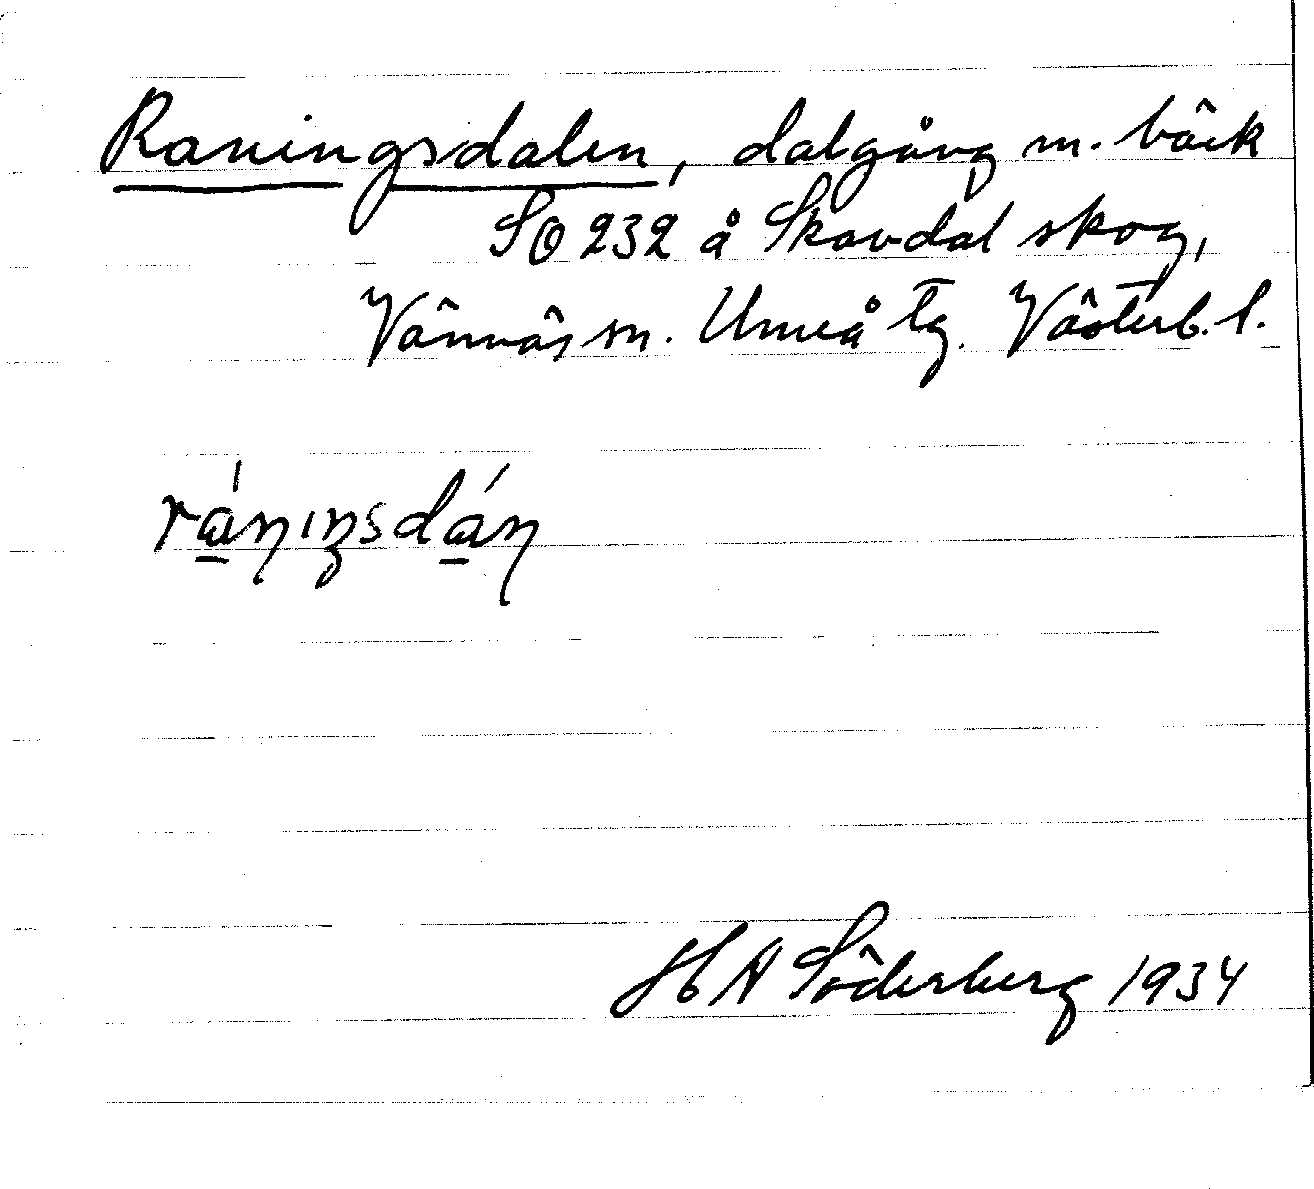 Raningsdalen, dalgång m. bäck
SO 232 å Skavdal skog,
Vännäs sn. Umeå tg. Västerb. l.
rá̱nıŋsdá̱n
HA Söderberg 1934